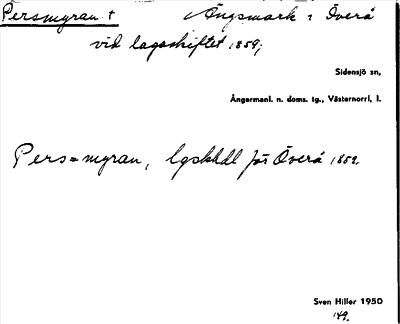 Persmyran † Ängsmark i Överå
vid lagaskiftet 1859;
Sidensjö sn,
Ångermanl. n. doms. tg., Västernorrl. l.
Pers=myran, lgskhdl för Överå 1859.
Sven Hiller 1950
149.